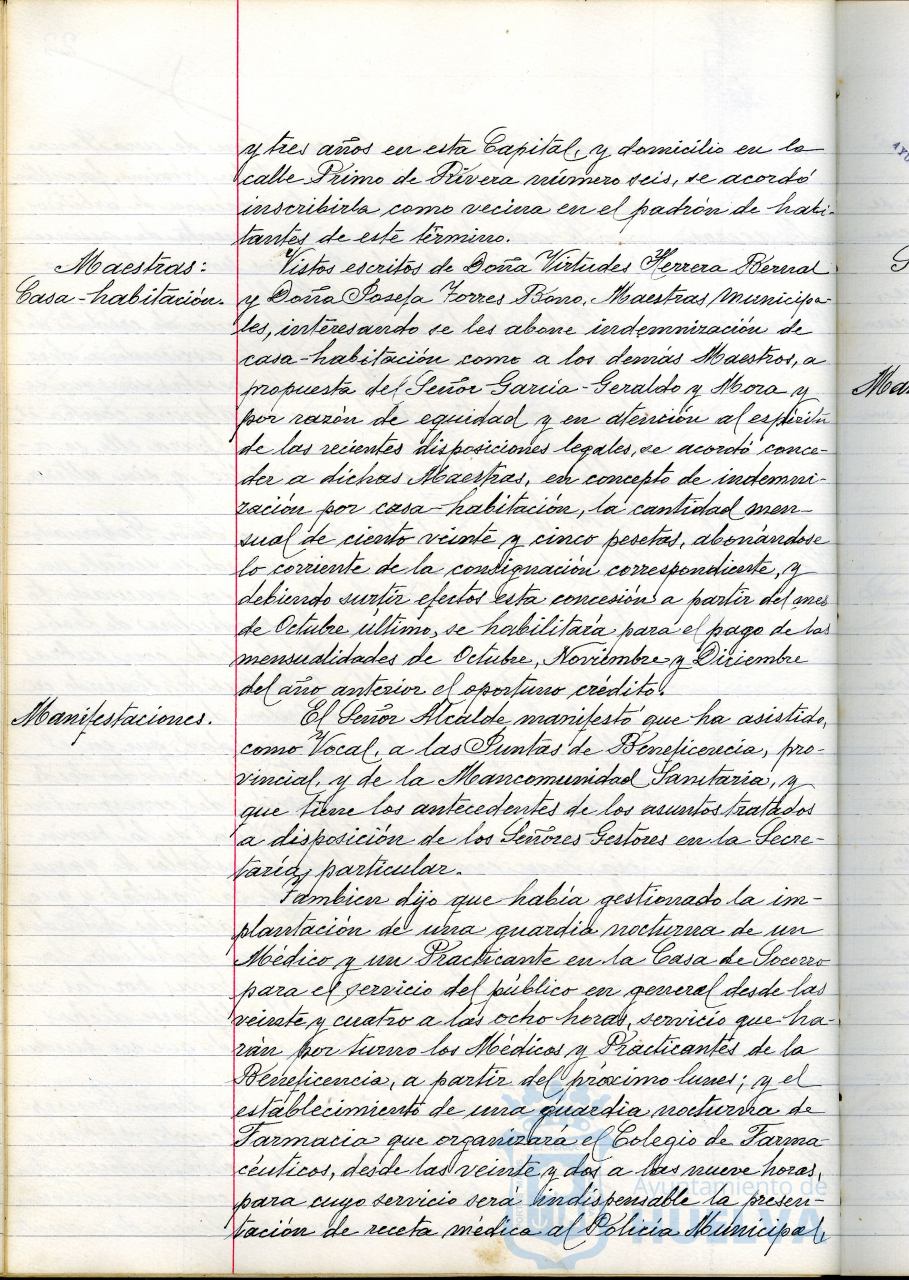 y tres años en esta Capital, y domicilio en la
calle Primo de Rivera número seis, se acordó
inscribirla como vecina en el padrón de habi-
tantes de este término.
Maestras:
Casa-habitación.
Vistos escritos de Doña Virtudes Herrera Bernal
y Doña Josefa Torres Bono, Maestras Municipa-
les, interesando se les abone indemnización de
casa-habitación como a los demás Maestros, a
propuesta del Señor García-Geraldo y Mora y
por razón de equidad y en atención al espíritu
de las recientes disposiciones legales, se acordó conce-
der a dichas Maestras, en concepto de indemni-
zación por casa-habitación, la cantidad men-
sual de ciento veinte y cinco pesetas, abonándose
lo corriente de la consignación correspondiente, y
debiendo surtir efectos esta concesión a partir del mes
de Octubre último, se habilitará para el pago de las
mensualidades de Octubre, Noviembre y Diciembre
del año anterior el oportuno crédito.
Manifestaciones.
El Señor Alcalde manifestó que ha asistido,
como Vocal, a las Juntas de Beneficencia, pro-
vincial, y de la Mancomunidad Sanitaria, y
que tiene los antecedentes de los asuntos tratados
a disposición de los Señores Gestores en la Secre-
taría particular.
Tambien dijo que había gestionado la im-
plantación de una guardia nocturna de un
Médico y un Practicante en la Casa de Socorro
para el servicio del público en general desde las
veinte y cuatro a las ocho horas, servicio que ha-
rán por turno los Médicos y Practicantes de la
Beneficencia, a partir del próximo lunes; y el
establecimiento de una guardia nocturna de
Farmacia que organizará el Colegio de Farma-
céuticos, desde las veinte y dos a las nueve horas,
para cuyo servicio será indispensable la presen-
tación de receta médica al Policía Municipal,
Ayuntamiento de
HUELVA